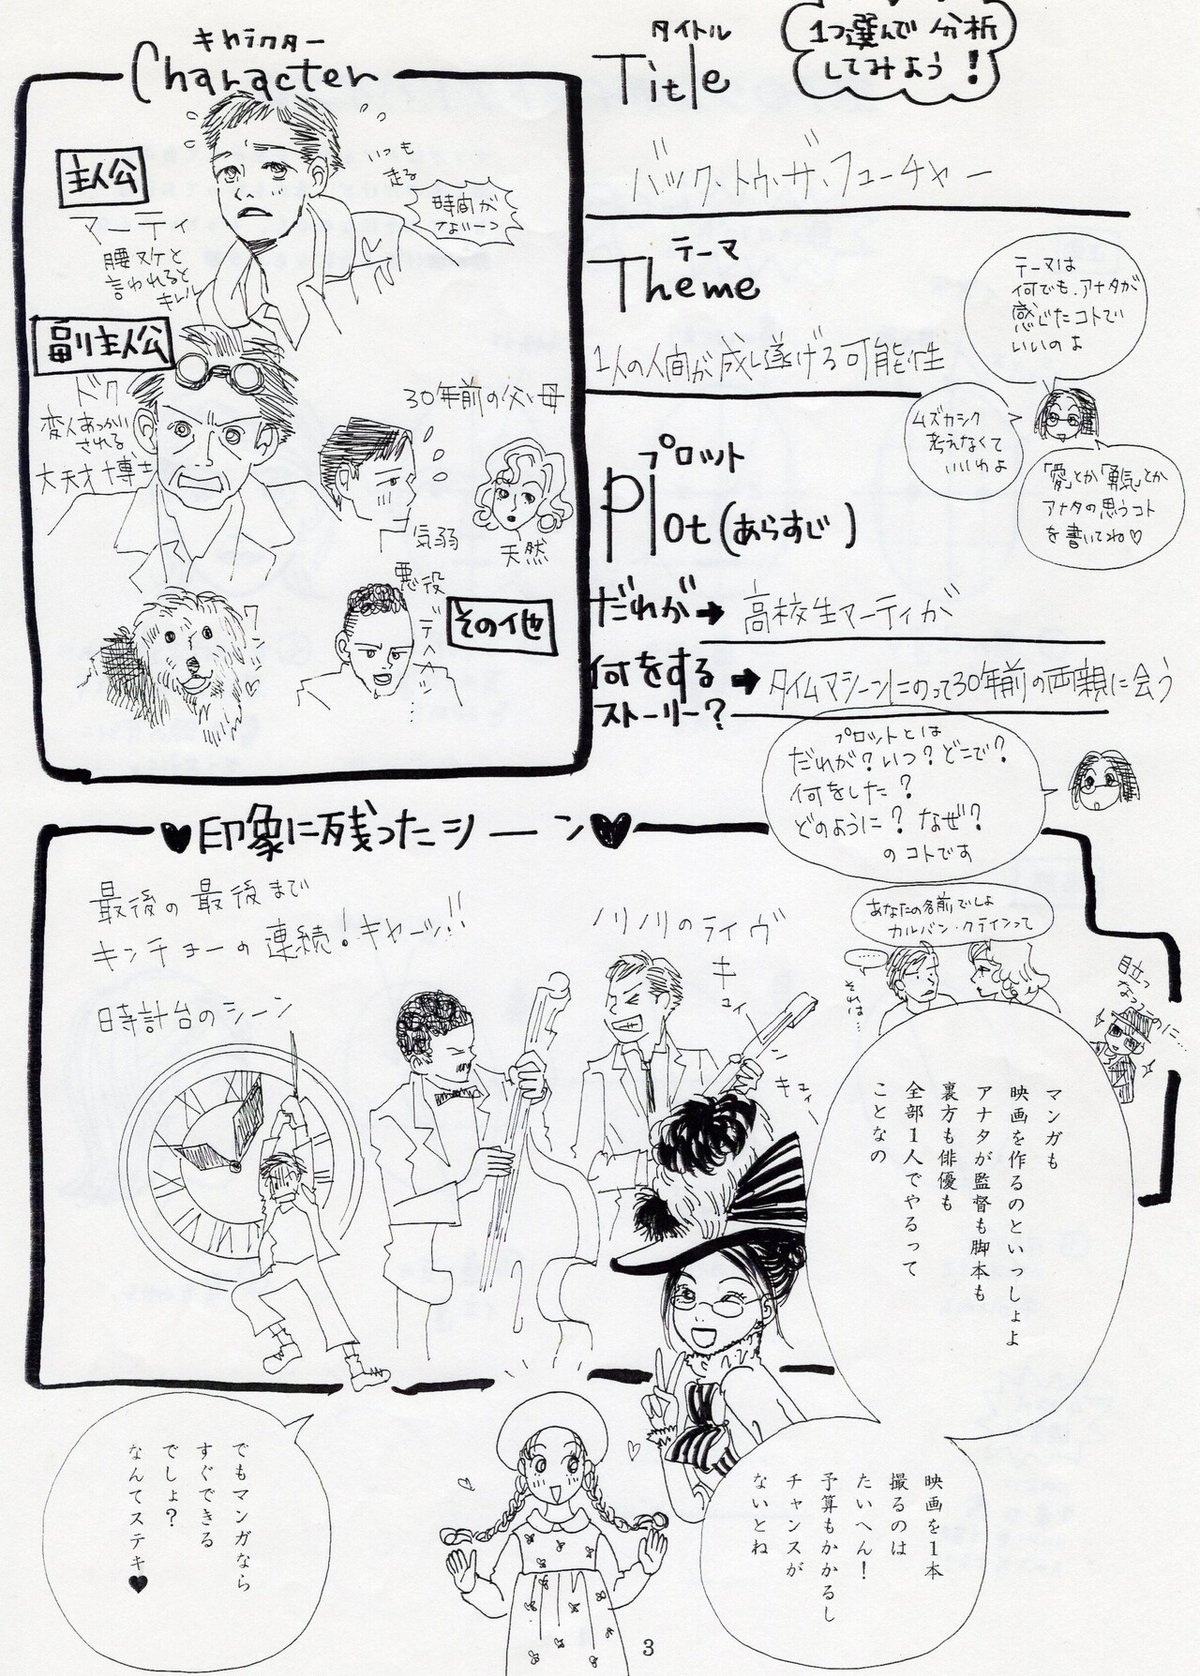 キャラクター
Character
主人公
マーティ
腰ヌケと
言われると
キレル
いつも
走る
時間が
ないーっ
副主人公
ドク
変人あつかい
される
大天才博士
30年前の父、母
気弱
天然
悪役
デヘヘッ…
その他
ワンッ♡
タイトル
Title
1つ選んで分析
してみよう!
バック・トゥ・ザ・フューチャー
テーマ
Theme
1人の人間が成し遂げる可能性
テーマは
何でも、アナタが
感じたコトで
いいのよ
ムズカシク
考えなくて
いいわよ
「愛」とか「勇気」とか
アナタの思うコト
を書いてね♡
プロット
Plot(あらすじ)
だれが→高校生マーティが
何をする
ストーリー?
→タイムマシーンにのって30年前の両親に会う
プロットとは
だれが?いつ?どこで?
何をした?
どのように?なぜ?
のコトです
♥印象に残ったシーン♥
最後の最後まで
キンチョーの連続!キャーッ!!
時計台のシーン
ノリノリのライヴ
キュィーン
キュィー
あなたの名前でしょ
カルバン・クラインって
……
それは…
目立っ
なってのに…
マンガも
映画を作るのといっしょよ
アナタが監督も脚本も
裏方も俳優も
全部1人でやるって
ことなの
映画を1本
撮るのは
たいへん!
予算もかかるし
チャンスが
ないとね
でもマンガなら
すぐできる
でしょ?
なんてステキ♥
3